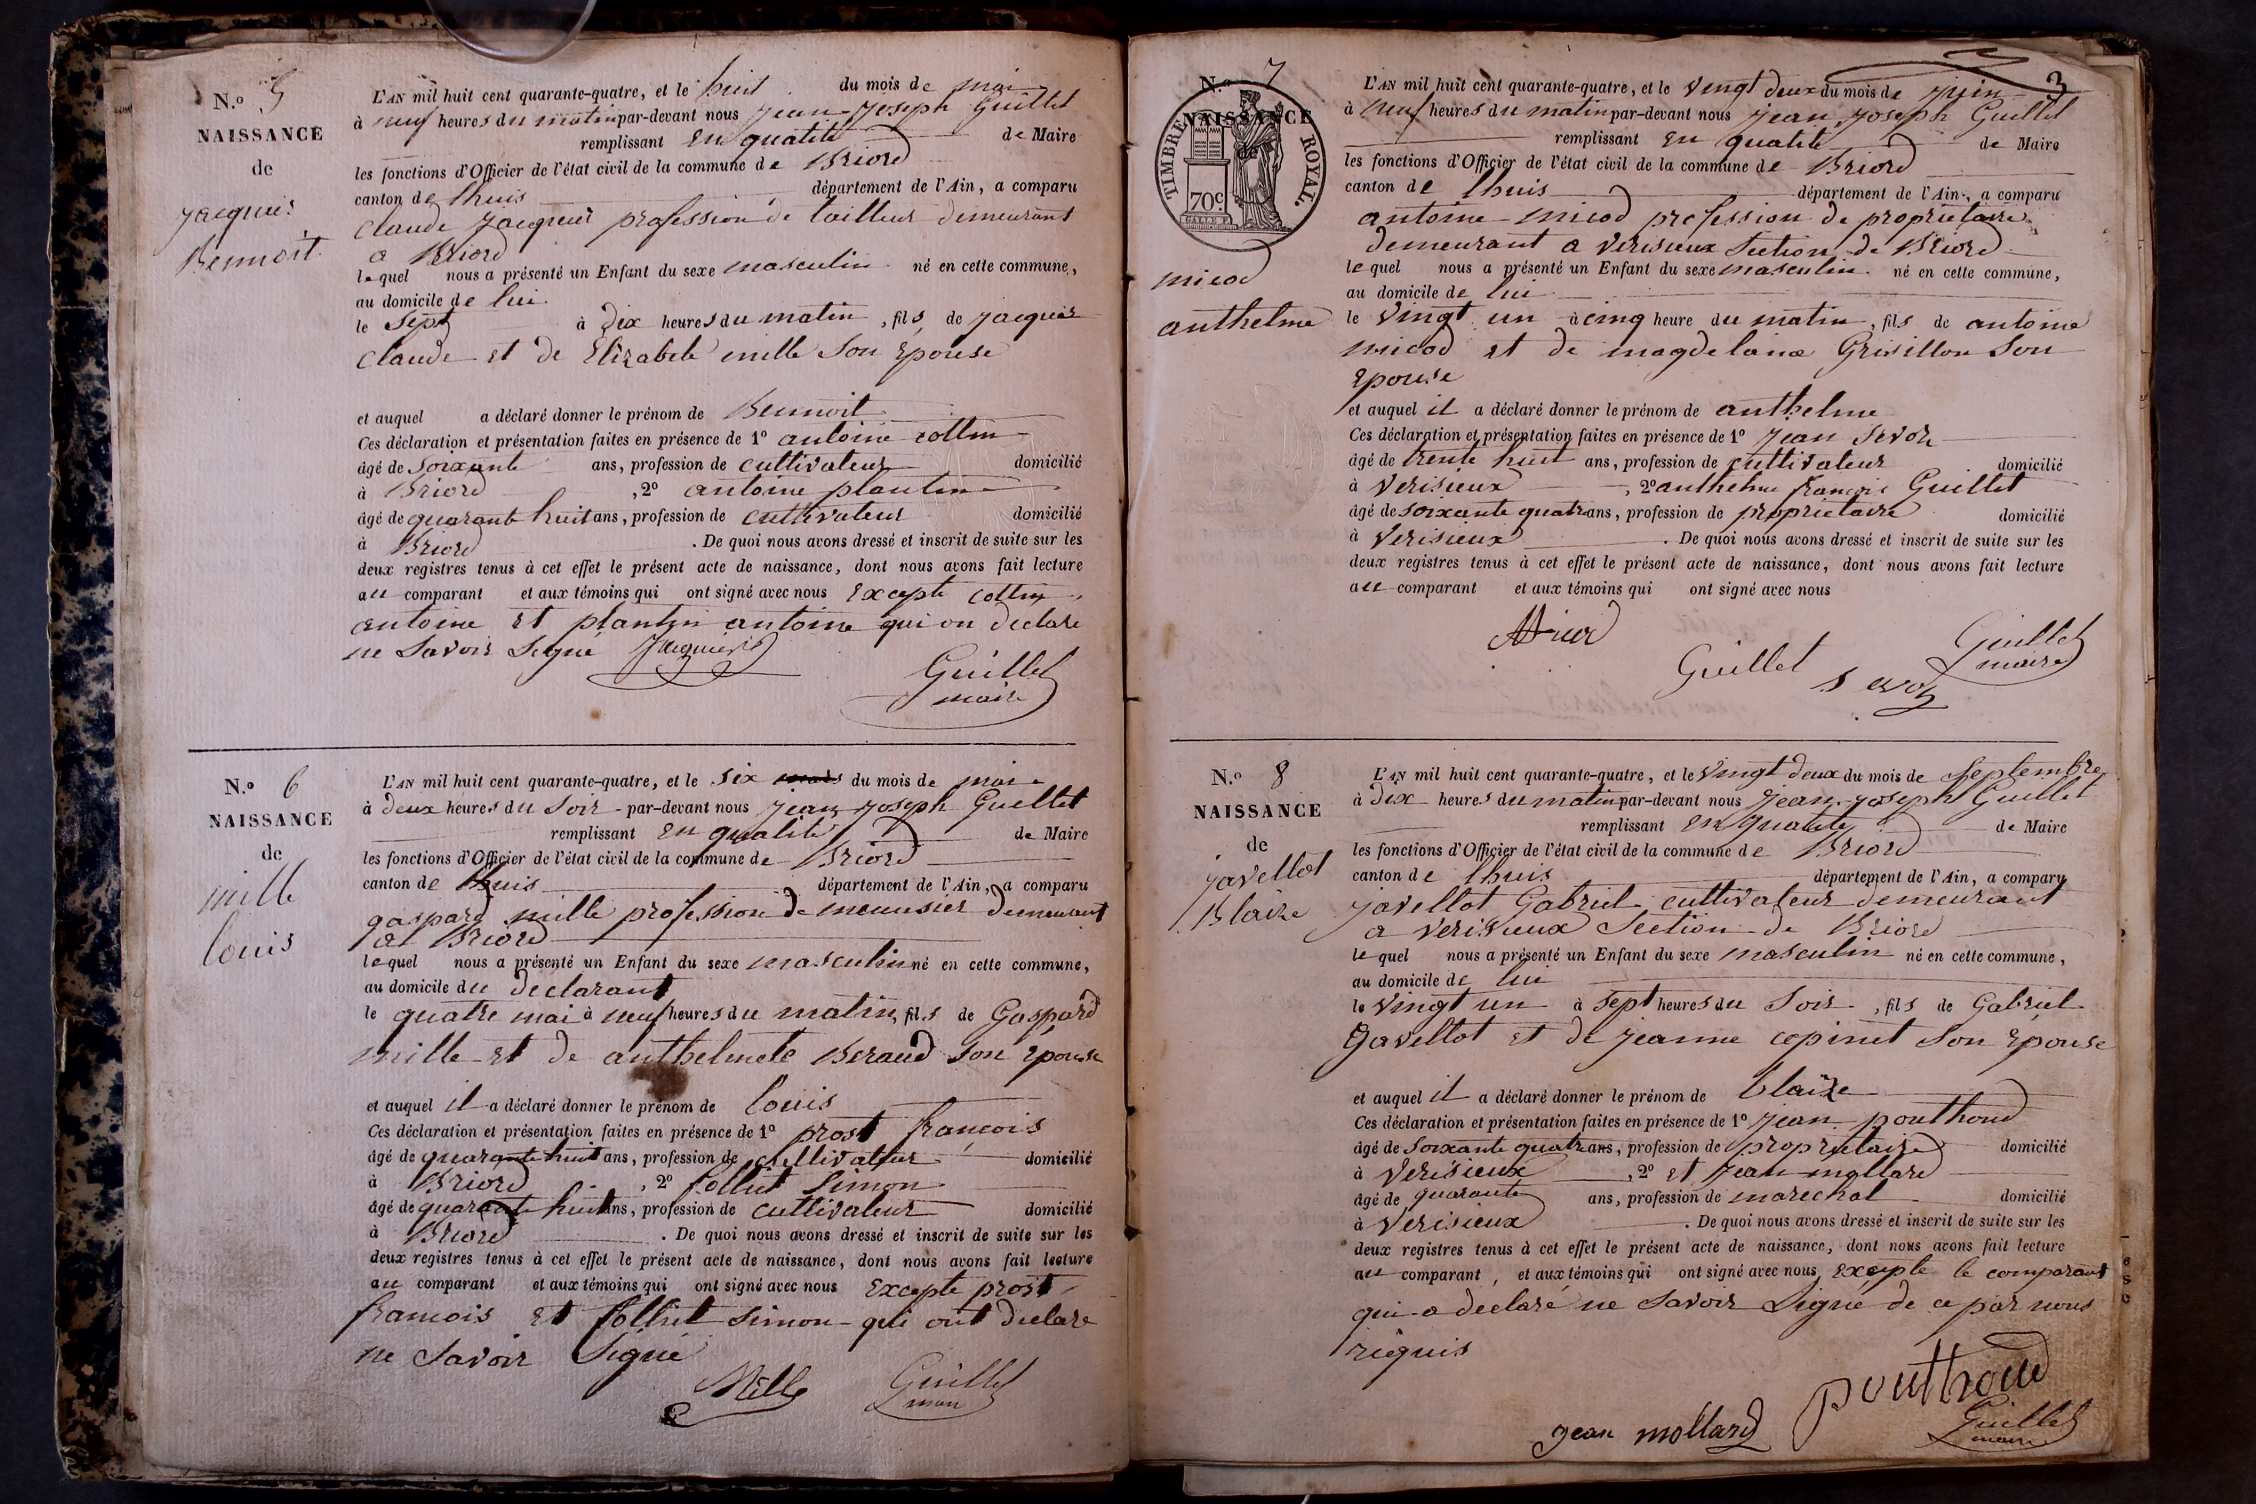 N.o 5
NAISSANCE
de
jacquier
Bennoit
L'AN mil huit cent quarante-quatre, et le huit du mois de mai
à neuf heures du matin par-devant nous jean joseph Guillet
remplissant en qualité de Maire
les fonctions d'Officier de l'état civil de la commune de Briord
canton de lhuis département de l'Ain, a comparu
claude jacquier profession de tailleur demeurant
a Briord
lequel nous a présenté un Enfant du sexe masculin né en cette commune,
au domicile de lui
le sept à dix heures du matin, fils de jacquier
claude et de Elizabete mille son epouse
et auquel a déclaré donner le prénom de Bennoit
Ces déclaration et présentation faites en présence de 1o antoine collin
âgé de soixante ans, profession de cultivateur domicilié
à Briord, 2o antoine plantin
âgé de quarante huit ans, profession de cultivateur domicilié
à Briord. De quoi nous avons dressé et inscrit de suite sur les
deux registres tenus à cet effet le présent acte de naissance, dont nous avons fait lecture
au comparant et aux témoins qui ont signé avec nous Excepte collin
antoine et plantin antoine qui on declare
ne savoir signé Jacquier
Guillet
maire
N.o 6
NAISSANCE
de
mille
louis
L'AN mil huit cent quarante-quatre, et le six mars du mois de mai
à deux heures du soir par-devant nous jean joseph Guillet
remplissant en qualité de Maire
les fonctions d'Officier de l'état civil de la commune de Briord
canton de lhuis département de l'Ain, a comparu
gaspard mille profession de meunsier demeurant
a Briord
lequel nous a présenté un Enfant du sexe masculin né en cette commune,
au domicile du declarant
le quatre mai à neuf heures du matin, fils de Gaspard
mille et de anthelmete Beraud son epouse
et auquel il a déclaré donner le prénom de louis
Ces déclaration et présentation faites en présence de 1o prost francois
âgé de quarante huit ans, profession de cultivateur domicilié
à Briord, 2o folliet simon
âgé de quarante huit ans, profession de cultivateur domicilié
à Briord. De quoi nous avons dressé et inscrit de suite sur les
deux registres tenus à cet effet le présent acte de naissance, dont nous avons fait lecture
au comparant et aux témoins qui ont signé avec nous Excepte prost
francois et folliet simon qui ont declare
ne savoir signé
Mille Guillet
maire
3
N.o 7
NAISSANCE
de
TIMBRE ROYAL.
70c.
micod
anthelme
L'AN mil huit cent quarante-quatre, et le vingt deux du mois de juin
à neuf heures du matin par-devant nous jean joseph Guillet
remplissant en qualité de Maire
les fonctions d'Officier de l'état civil de la commune de Briord
canton de lhuis département de l'Ain, a comparu
antoine micod profession de propriétaire
demeurant a verisieux section de Briord
lequel nous a présenté un Enfant du sexe masculin né en cette commune,
au domicile de lui
le vingt un à cinq heure du matin, fils de antoine
micod et de magdelaine Grisillon son
epouse
et auquel il a déclaré donner le prénom de anthelme
Ces déclaration et présentation faites en présence de 1o jean servoz
âgé de trente huit ans, profession de cultivateur domicilié
à verisieux, 2o anthelme francois Guillet
âgé de soixante quatre ans, profession de proprietaire domicilié
à verisieux. De quoi nous avons dressé et inscrit de suite sur les
deux registres tenus à cet effet le présent acte de naissance, dont nous avons fait lecture
au comparant et aux témoins qui ont signé avec nous
Micod Guillet
maire
Guillet servoz
N.o 8
NAISSANCE
de
javellot
Blaize
L'AN mil huit cent quarante-quatre, et le vingt deux du mois de septembre
à dix heures du matin par-devant nous jean joseph Guillet
remplissant en qualité de Maire
les fonctions d'Officier de l'état civil de la commune de Briord
canton de lhuis département de l'Ain, a comparu
javellot Gabriel cultivateur demeurant
a verisieux section de Briord
lequel nous a présenté un Enfant du sexe masculin né en cette commune,
au domicile de lui
le vingt un à sept heures du soir, fils de Gabriel
Gavellot et de jeanne cepinet son epouse
et auquel il a déclaré donner le prénom de blaize
Ces déclaration et présentation faites en présence de 1o jean pouthoud
âgé de soixante quatre ans, profession de proprietaire domicilié
à verisieux, 2o et jean mollard
âgé de quarante ans, profession de marechal domicilié
à verisieux. De quoi nous avons dressé et inscrit de suite sur les
deux registres tenus à cet effet le présent acte de naissance, dont nous avons fait lecture
au comparant, et aux témoins qui ont signé avec nous, excepte le comparant
qui a declaré ne savoir signé de ce par nous
requis
pouthoud
jean mollard Guillet
maire